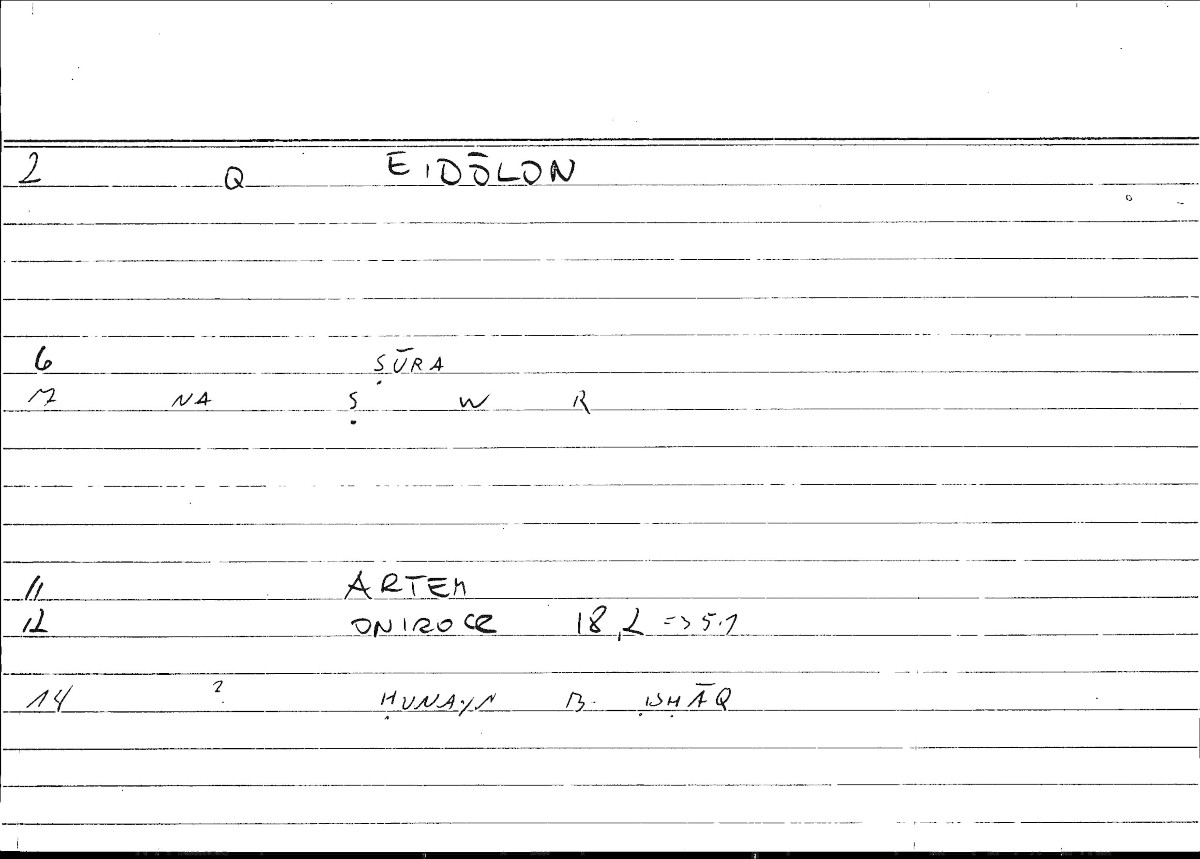 2 Q EIDŌLON
6 ṢŪRA
7 NA Ṣ W R
11 ARTEM
12 ONIROCR 18,2 => 5.1
14 ? ḤUNAYN B. ISḤĀQ